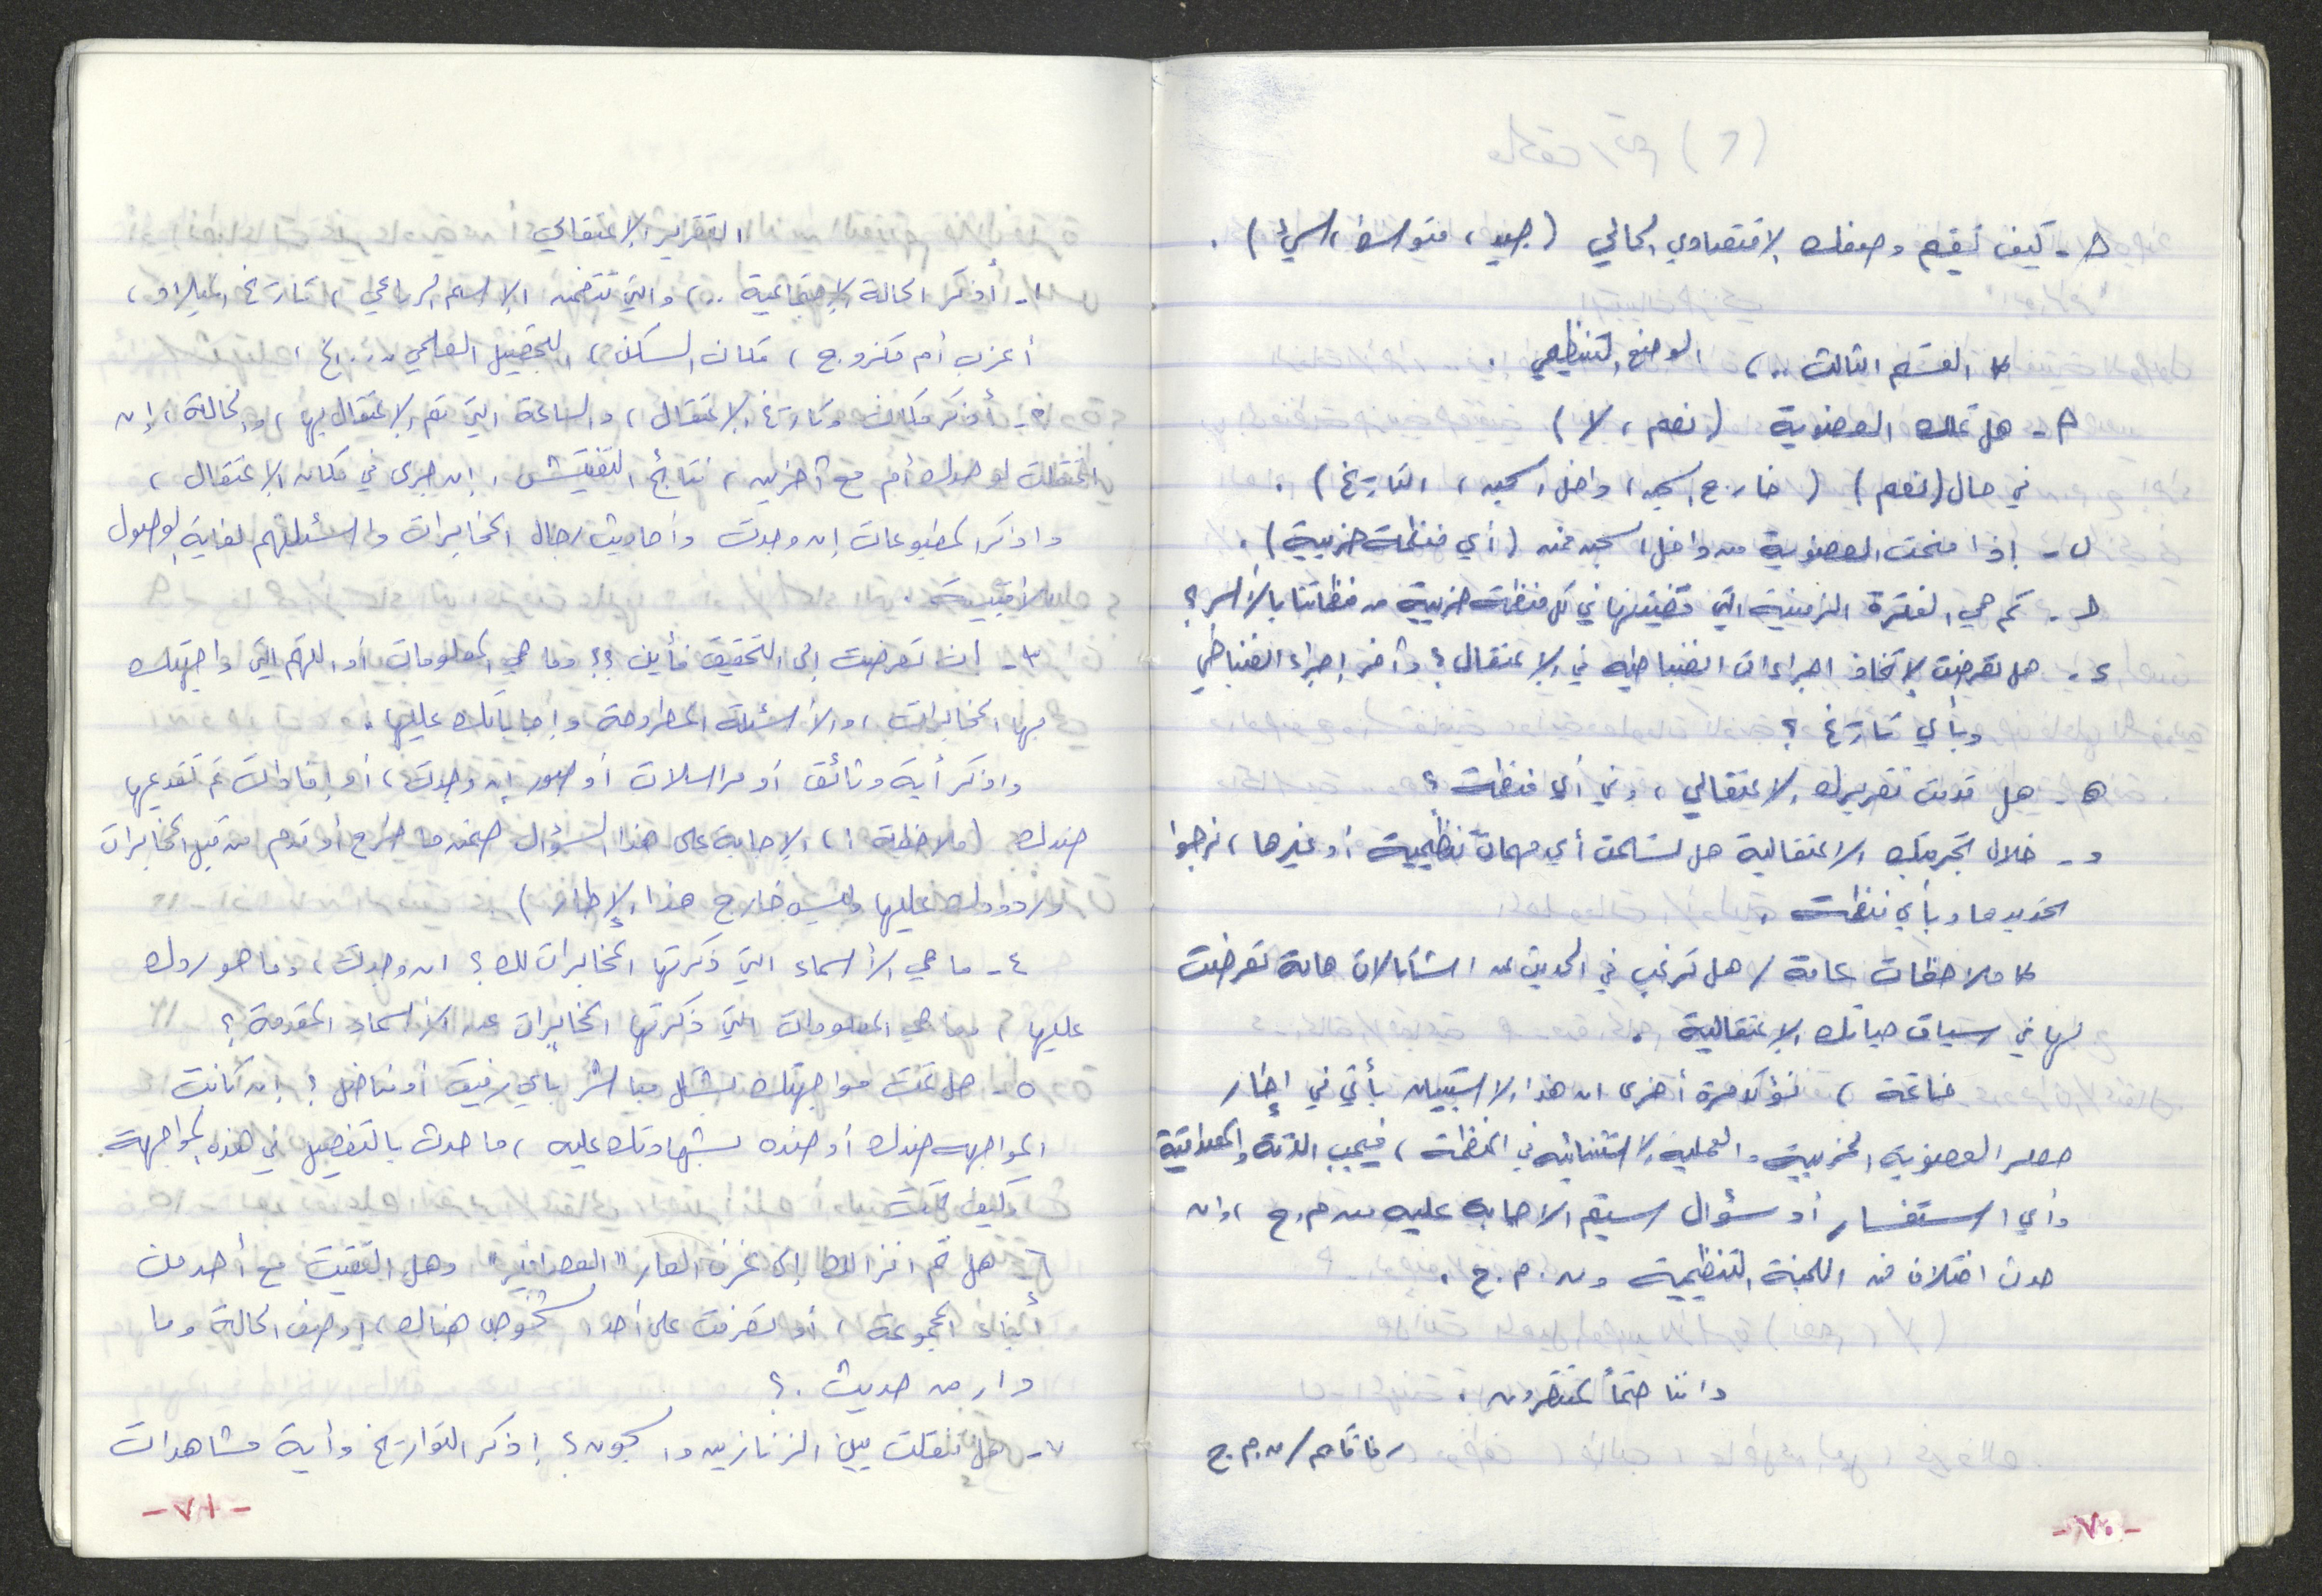 ح- كيف تقيم وضعك الإقتصادي الحالي (جيد، متوسط، سيئ).
* القسم الثالث ..، الوضع التنظيمي.
أ- هل تملك العضوية (نعم، لا)
في حال (نعم) ( خارج السجن، داخل السجن، التاريخ).
ب- إذا منحت العضوية من داخل السجن فمن (أي منظمة حزبية).
ج- كم هي الفترة الزمنية التي قضيتها في كل منظمة حزبية من منظماتنا بالأسر؟
د- هل تعرضت لإتخاذ اجراءات انضباطيه في الإعتقال؟ وآخر إجراء انضباطي
وبأي تاريخ؟
ه- هل قدمت تقريرك الإعتقالي، وفي أي منظمة؟
و- خلال تجربتك الاعتقالية هل تسلمت أي مهمات تنظيمية أو غيرها، نرجوا
تحديدها وبأي منظمة.
* ملاحظات عامة / هل ترغب في الحديث عن اشكالات هامة تعرضت
لها في سياق حياتك الإعتقالية.
خاتمة، نؤكد مرة أخرى ان هذا الاستبيان يأتي في إطار
حصر العضوية الحزبية والعملية الاستثنائيه في المنظمة، فيجب الدقة والمصداقية
وأي استفسار أو سؤال سيتم الاجابه عليه من م.ح، وان
حدث اختلاف فمن اللجنة التنظيمية ون.م.ح.
واننا حتماً لمنتصرون.
رفاقكم/ن.م.ح
-٧٠-
التقرير الإعتقالي
١- أذكر الحالة الإجتماعية ..، والتي تتضمن الإسم الرباعي، تاريخ الميلاد،
أعزب أم متزوج، مكان السكن، التحصيل العلمي ... الخ.
٢- أذكر مكان وتاريخ الإعتقال، والساعة التي تم الإعتقال بها، والحالة، إن
اعتقلت لوحدك أم مع آخرين، نتائج التفتيش، إن جرى في مكان الإعتقال،
واذكر المضبوعات إن وجدت وأحاديث رجال المخابرات واسئلتهم لغاية الوصول
للأقبية.
٣- إن تعرضت إلى التحقيق فأين؟؟ وما هي المعلومات أو التهم التي واجهتك
بها المخابرات، والأسئلة المطروحة وإجاباتك عليها.
واذكر أية وثائق أو مراسلات أو صور إن وجدت، أو إفادات تم تقديمها
ضدك (ملاحظة: الإجابة على هذا السؤال ضمن ما طرح أو قدم من قبل المخابرات
وردودك عليها وليس خارج هذا الإطار)
٤- ما هي الأسماء التي ذكرتها المخابرات لك؟ ان وجدت، وما هو ردك
عليها، وما هي المعلومات التي ذكرتها المخابرات عن الأسماء المقدمة؟
٥- هل تمت مواجهتك بشكل مباشر بأي رفيق أو مناضل؟ إن كانت
المواجهه ضدك أو ضده بشهادتك عليه، ما حدث بالتفصيل في هذه المواجهة
وكيف تمت
٦- هل تم انزالك إلى غرف العار "العصافير" وهل التقيت مع أحد من
أبناء المجموعة، أو تعرفت على أحد شخوص هناك، إوصف الحالة وما
دار من حديث.؟
٧- هل تنقلت بين الزنازين والسجون؟ إذكر التواريخ وأية مشاهدات
-٧١-